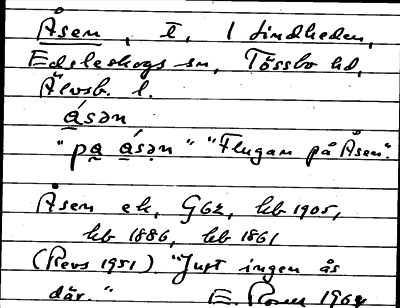 Åsen, t, 1 Lindheden,
Edsleskogs sn, Tössbo hd,
Älvsb. l.
ásən
"pa ásən" "Flugan på Åsen".
Åsen ek, G62, hb 1905,
hb 1886, hb 1861
(Revs 1951) "Just ingen ås
där." E. 1969